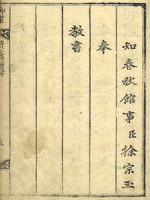 知春秋館事臣徐宗玉
奉
教書